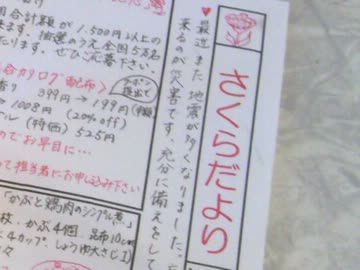 さくらだより
♥最近また地震が多くなりました。
来るのが災害です。充分に備えをして
計額が1,500円以上の
ます。抽選のうえ全国5万名
たります。ぜひご応募下さい。
カタログ配布>
クーポン
399円→199円
1008円 (20%off)
ル (特価) 525円
のでお早目に…
て担当者にお申し込み下さい
「かぶと鶏肉のシンプル煮」
枚、かぶ4個 昆布10cm
4カップ、しょうゆ大さじ1)